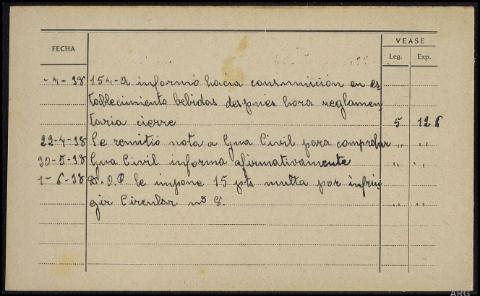 FECHA VEASE
Leg. Exp.
-4-38 154-a informó hacia consumición en es
tablecimiento bebidas despues hora reglamen
taria cierre 5 126
22-4-38 Se remitió nota a Gua Civil para comprobar " "
30-5-38 Gua Civil informa afirmativamente " "
1-6-38 S.O.P. le impone 15 pts multa por infrin
gir Circular nº 8. " "
ARG